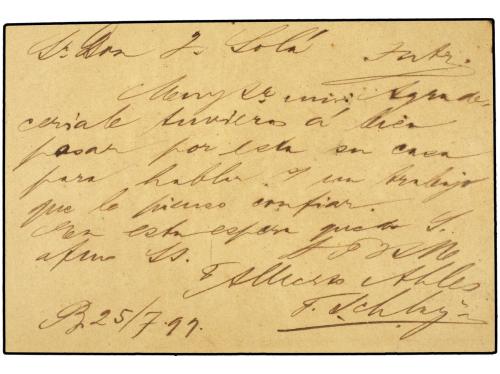 Sr. Don J. Solá
Muy Sr. mio: Agrade-
ceriale tuvieras á bien
pasar por esta su casa
para hablar d un trabajo
que le pienso confiar.
En esta espera quedo S.
afmo SS.
Alberto Ahles
B. 25/7.99.